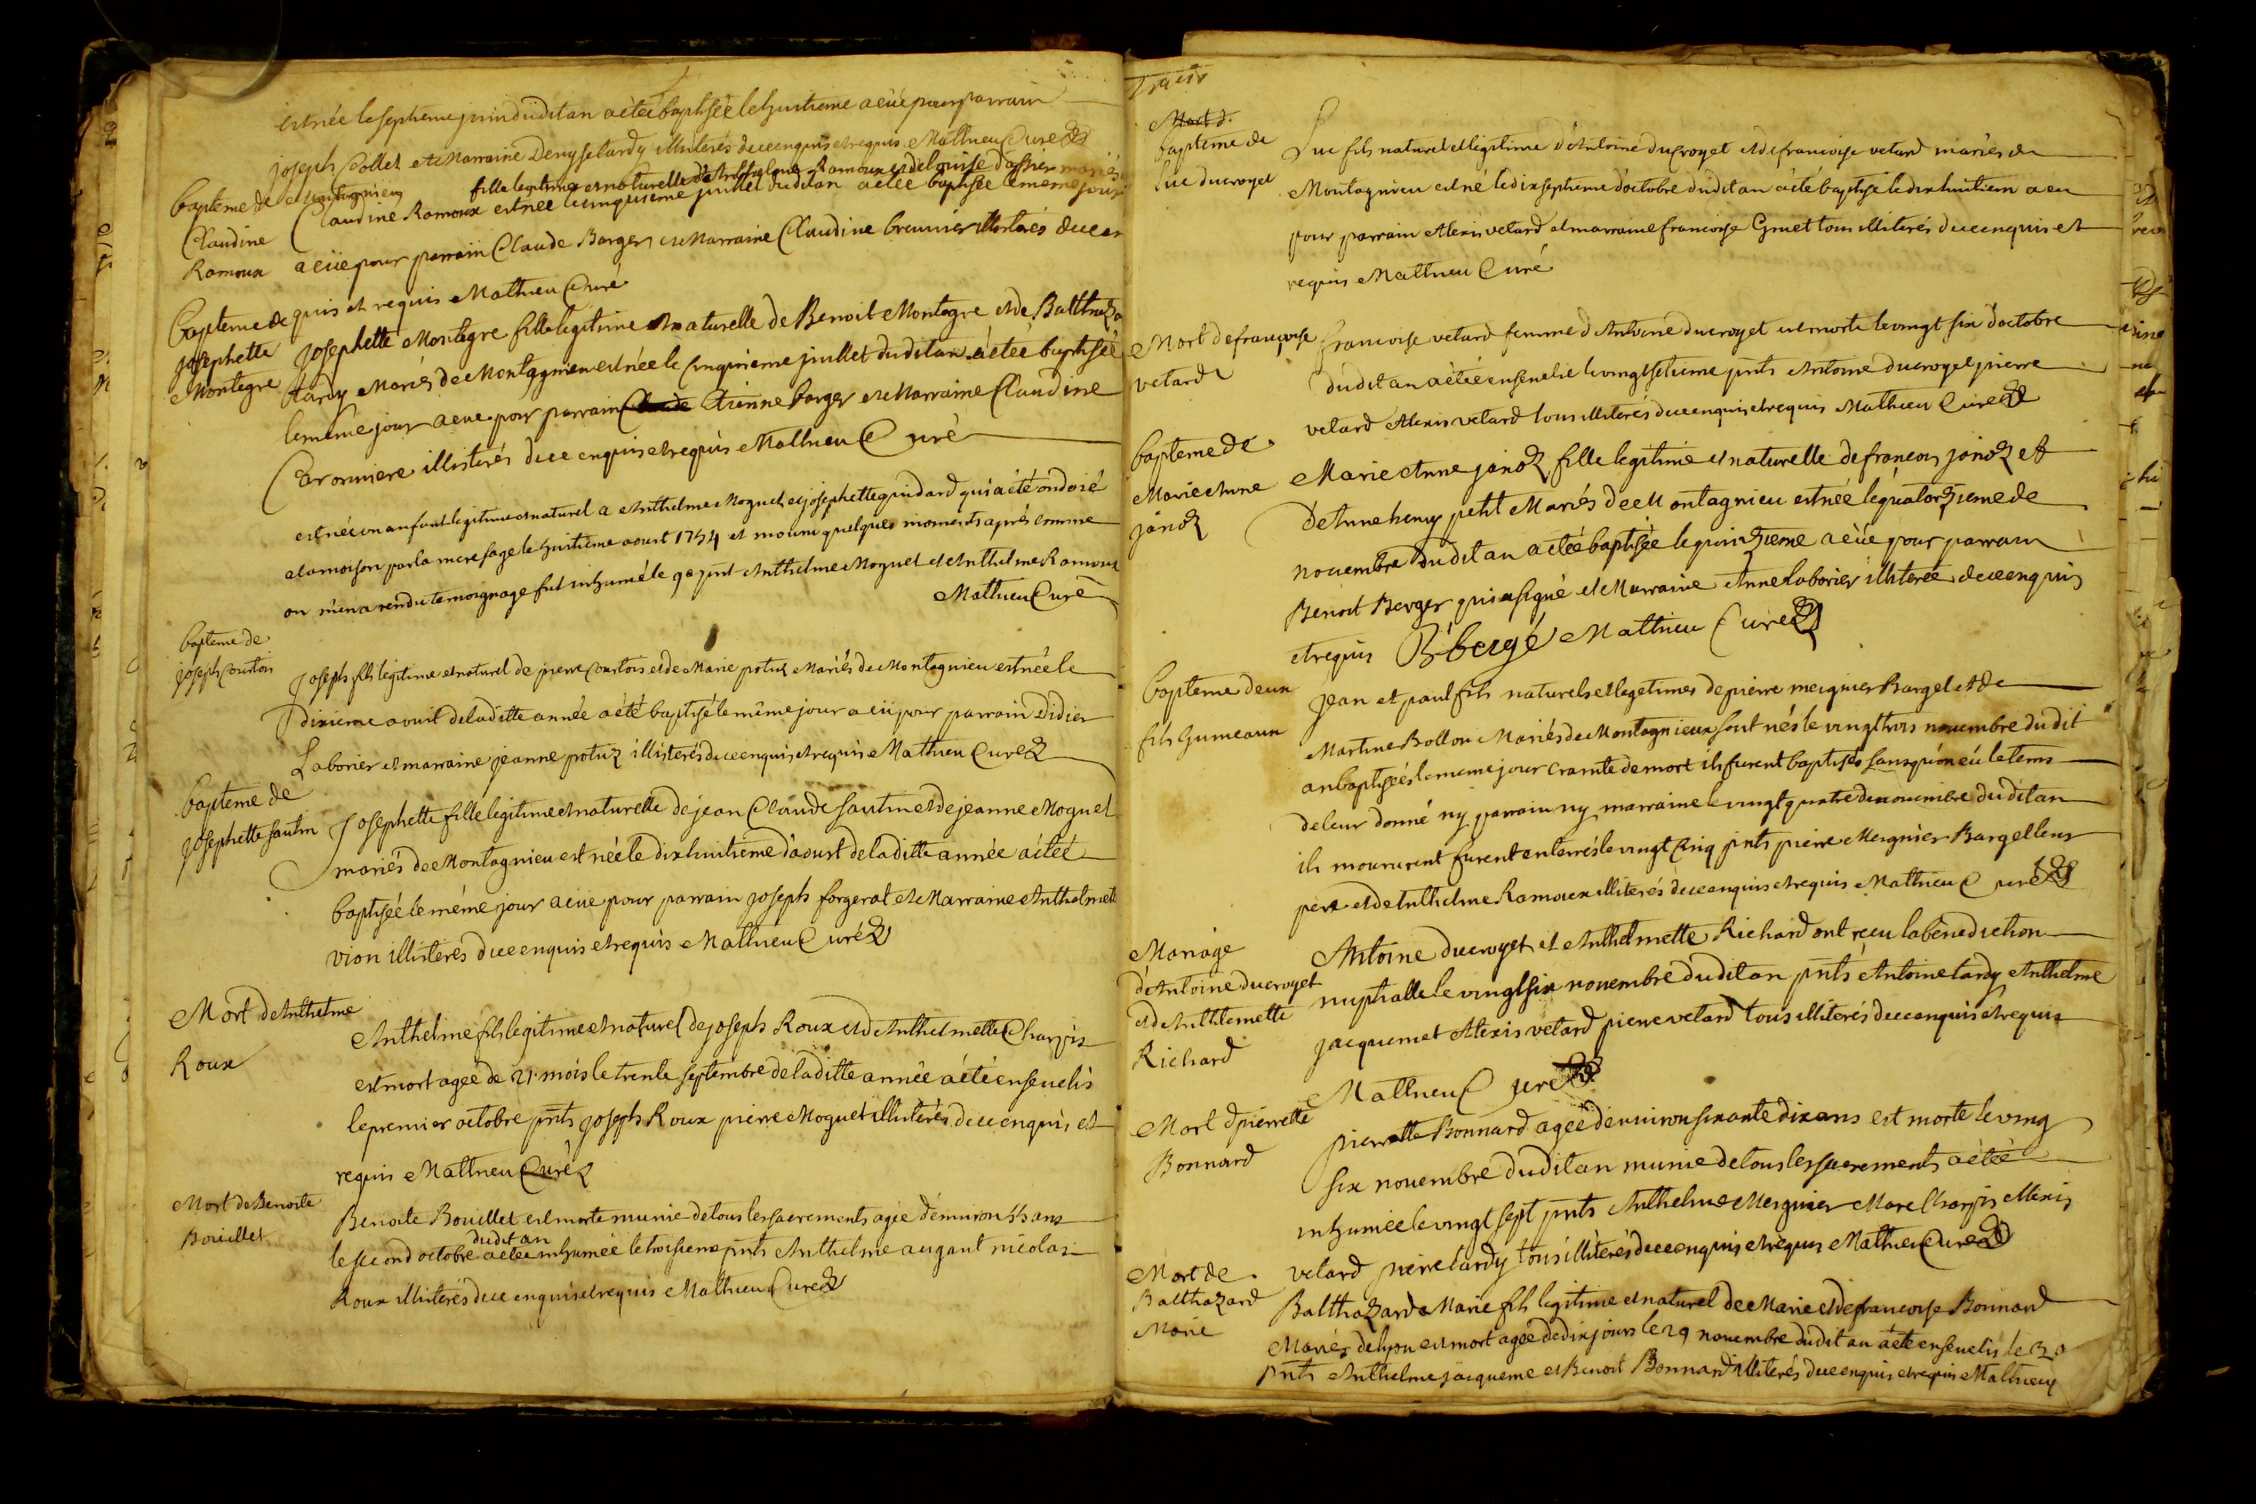 est née le septieme juin dudit an a étée baptisée le huitieme a eüe pour parrain
joseph Collet et Marraine Denyse tardy illiterés de ce enquis et requis Mathieu Curé
fille legitime et naturelle d'Anthelme Ramoux et de louise dasner mariés
Bapteme de
Claudine
Ramoux
de Montagnieu
Claudine Ramoux est née le cinquieme juillet dudit an a étée baptisée le meme jour
a eüe pour parrain Claude Barger et Marraine Claudine breunier illiterés de ce en
quis et requis Mathieu Curé
Bapteme de
josephette
Montegre
josephette Montegre fille legitime et naturelle de Benoit Montegre et de Balthaza
tardy Mariés de Montagnieu est née le cinquieme juillet dudit an a étée baptisée
le meme jour a eue pour parrain Claude Etienne barger et Marraine Claudine
Caronniere illiterés de ce enquis et requis Mathieu Curé
est née un anfant legitime et naturel a Anthelme Moguet et josephette guindard qui a été ondoié
a la maison par la mere sage le huitieme aoust 1754 et mouru quelques moments aprés comme
on m'en a rendu temoignage fut inhumé le 9e pnt Anthelme Moguet et Anthelme Ramoux
Mathieu Curé
bapteme de
joseph Courtois
Joseph fils legitime et naturel de pierre Courtois et de Marie potuz Mariés de Montagnieu est née le
dixieme avril de la ditte année a été baptisé le même jour a eü pour parrain Didier
Laborier et marraine jeanne potuz illiterés de ce enquis et requis Mathieu Curé
bapteme de
josephette sautin
Josephette fille legitime et naturelle de jean Claude sautin et de jeanne Moguet
mariés de Montagnieu est née le dixhuitieme d'aoust de la ditte année a étée
baptisée le méme jour a eüe pour parrain joseph forgerat et Marraine Anthelmette
vion illiterés de ce enquis et requis Mathieu Curé
Mort d'Anthelme
Roux
Anthelme fils legitime et naturel de joseph Roux et d'Anthelmette Charpis
est mort agee de 21 mois le trente septembre de la ditte année a été ensevelis
le premier octobre pnts joseph Roux pierre Moguet illiterés de ce enquis et
requis Mathieu Curé
Mort de Benoite
Boüillet
Benoite Boüillet est morte munie de tous les sacrements agée d'environ ans
le second octobre dudit an a étée inhumée le troisieme pnts Anthelme augant nicolas
Roux illiterés de ce enquis et requis Mathieu Curé
Mort d.
bapteme de
luc ducroyet
Luc fils naturel et legitime d'Antoine ducroyet et de francoise vetard mariés de
Montagnieu est né le dix septieme d'octobre dudit an a été baptisé le dixhuitiem a eu
pour parrain Alexis vetard et marraine francoise Gruet tous illiterés de ce enquis et
requis Mathieu Curé
Mort de françoise
vetard
francoise vetard femme d'Antoine ducroyet est morte le vingt six d'octobre
dudit an a étée ensevelie le vingt setieme pnts Antoine ducroyet pierre
vetard Alexis vetard tous illiterés de ce enquis et requis Mathieu Curé
bapteme de
Marie Anne
janoz
Marie Anne janoz fille legitime et naturelle de francois janoz et
d'Anne henry petit Mariés de Montagnieu est née le quatorzieme de
novembre dudit an a étée baptisée le quinzieme a eüe pour parrain
Benoit Berger qui a signé et Marraine Anne laborier illiterée de ce enquis
et requis B. bergé Mathieu Curé
bapteme deux
fils Gumeaux
Jean et paul fils naturels et legetimes de pierre meignier Bargel et de
Martine Bollon Mariés de Montagnieux sont nés le vingt trois novembre dudit
an baptisés le meme jour crainte de mort ils furent baptisés sans qu'on eü le tems
de leur donné ny parrain ny marraine le vingt quatre de novembre dudit an
ils moururent furent enterrés le vingt cinq pnts pierre Meignier Bargel leur
pere et d'Anthelme Ramoux illiterés de ce enquis et requis Mathieu Curé
Mariage
d'Antoine ducroyet
et d'Anthlemette
Richard
Antoine ducroyet et Anthelmette Richard ont reçu la bénédiction
nuptialle le vingt six novembre dudit an pnts Antoine tardy Anthelme
jacquemet Alexis vetard pierre vetard tous illiterés de ce enquis et requis
Mathieu Curé
Mort d pierrette
Bonnard
pierrette Bonnard agée d'environ soixante dix ans est morte le ving
six novembre dudit an munie de tous les sacrements a étée
inhumée le vingt sept pnts Anthelme Meignier Marc Charpis Alexis
vetard pierre tardy tous illiterés de ce enquis et requis Mathieu Curé
Mort de
Balthazard
Marie
Balthazard Marie fils legitime et naturel de Marie et de francoise Bonnard
Mariés de lyon est mort agée de dix jours le 29 novembre dudit an a été ensevelis le 30
pnts Anthelme jacqueme et Benoit Bonnard illiterés de ce enquis et requis Mathieu